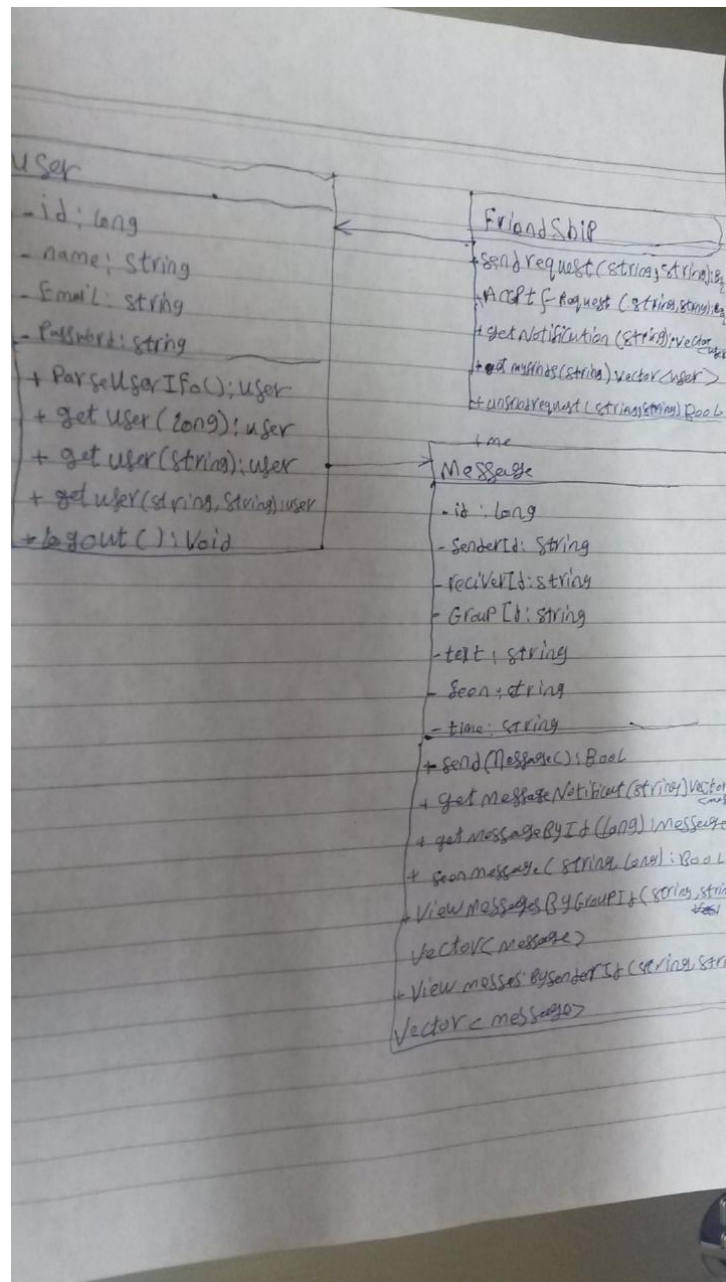 user
- id: long
- name: string
- Email: string
- Password: string
+ ParseUserIFo(): user
+ get user(long): user
+ get user(string): user
+ get user(string, string): user
+ logout(): Void
FriendShip
+ send request(string, string):
+ Accpt f-Request (string, string):
+ get Notification (string): vector
+ get (string) vector<user>
(string, string) Bool
+ me
Message
- id : long
- SenderId: String
- reciverId: string
- Group Id: string
- text: string
- Seen: string
- time: string
+ send(Message(): Bool
+ get message (string) vector
+ get messageById (long): message
+ seen message (string, long): Bool
+ View messages By GroupId (string,
Vector< message>
+ View By sender Id (string,
Vector< message>